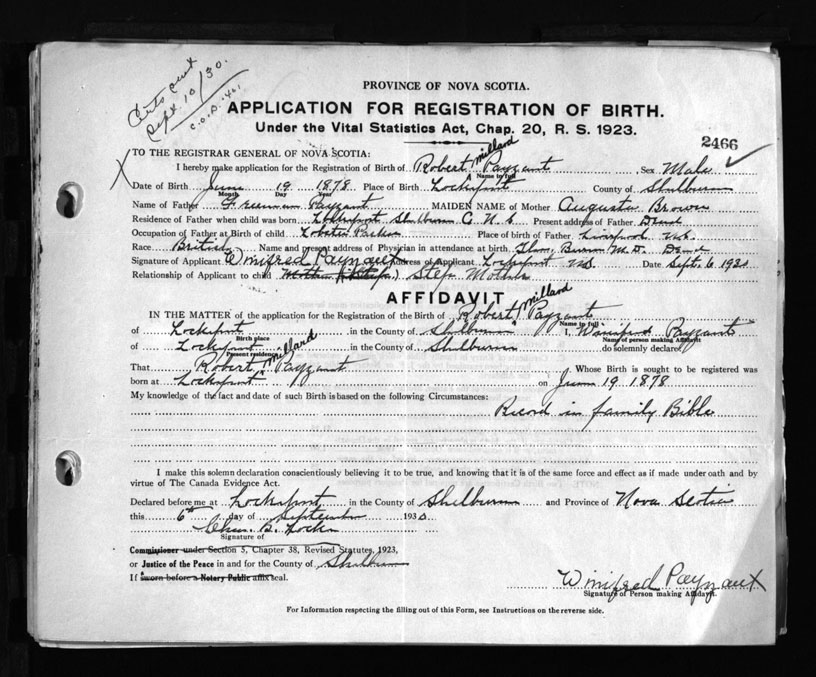 Sept. 10/30.
C.O.D. .46,
PROVINCE OF NOVA SCOTIA.
APPLICATION FOR REGISTRATION OF BIRTH.
Under the Vital Statistics Act, Chap. 20, R. S. 1923.
2466
TO THE REGISTRAR GENERAL OF NOVA SCOTIA:
I hereby make application for the Registration of Birth of Robert Millard Payzant Sex Male
Name in full
Date of Birth June 19 1878 Place of Birth Lockeport County of Shelburne
Month Day Year
Name of Father Freeman Payzant MAIDEN NAME of Mother Augusta Brown
Residence of Father when child was born Lockeport Shelburne C. N. S. Present address of Father Dead
Occupation of Father at Birth of child Lobster Packer Place of birth of Father Liverpool N.S.
Race British Name and present address of Physician in attendance at birth, M.D. Dead
Signature of Applicant Winifred Payzant Address of Applicant Lockeport NS Date Sept. 6 1930
Relationship of Applicant to child Mother (Step.) Step Mother
AFFIDAVIT
IN THE MATTER of the application for the Registration of the Birth of Robert Millard Payzant
Name in full
of Lockeport in the County of Shelburne I, Winifred Payzant
Birth place Name of person making Affidavit
of Lockeport in the County of Shelburne do solemnly declare
Present residence
That Robert Millard Payzant Whose Birth is sought to be registered was
born at Lockeport on June 19 1878
My knowledge of the fact and date of such Birth is based on the following Circumstances:
Record in family Bible
I make this solemn declaration conscientiously believing it to be true, and knowing that it is of the same force and effect as if made under oath and by
virtue of The Canada Evidence Act.
Declared before me at Lockeport in the County of Shelburne and Province of Nova Scotia
this 6th day of September 1930
Chas. S. Locke
Signature of
Commissioner under Section 5, Chapter 38, Revised Statutes, 1923,
or Justice of the Peace in and for the County of Shelburne
If sworn before a Notary Public affix seal.
Winifred Payzant
Signature of Person making Affidavit.
For Information respecting the filling out of this Form, see Instructions on the reverse side.